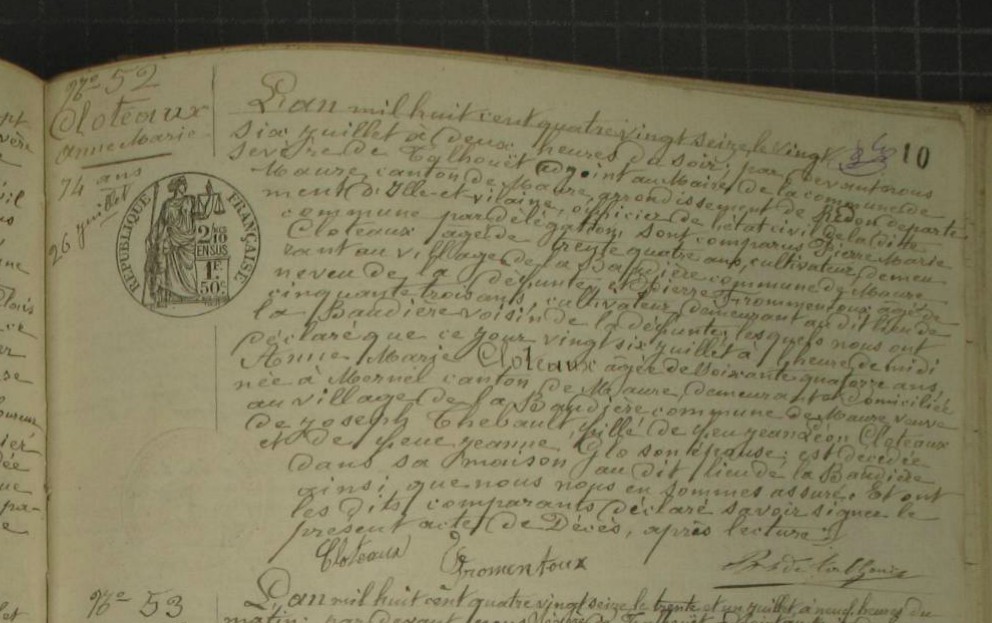 No 52
Cloteaux
Anne Marie
74 ans
26 juillet
RÉPUBLIQUE FRANÇAISE
2/10
EN SUS
1F
50c
10
L'an mil huit cent quatre vingt seize le vingt
six juillet à deux heures du soir, par devant nous
sevère de Talhouët Adjoint au Maire de la commune de
Maure, canton de Maure, arrondissement de Redon departe
ment d'Ille-et-vilaine, officier de l'état civil de la dite
commune par délégation, sont comparus Pierre Marie
Cloteaux âgé de trente quatre ans, cultivateur demeu
rant au village de la Baudière commune de Maure
neveu de la défunte, et Pierre Fromentoux âgé de
cinquante trois ans, cultivateur demeurant au dit lieu de
la Baudière voisin de la défunte, lesquels nous ont
déclaré que ce jour vingt six juillet à heure de midi
Anne Marie Cloteaux âgée de soixante quatorze ans,
née à Mernel canton de Maure, demeurant et domiciliée
au village de la Baudière commune de Maure veuve
de Joseph Thebault, fille de feu Jean Léon Cloteaux
et de feue Jeanne Glo son épouse, est decédée
dans sa maison au dit lieu de la Baudière
ainsi que nous nous en sommes assuré. Et ont
les dits comparants déclaré savoir signer le
present acte de Décès, après lecture.
Cloteaux Fromentoux
No 53
L'an mil huit cent quatre vingt seize le trente et un juillet, à neuf heures du
matin; par devant nous Sévère de Talhouët